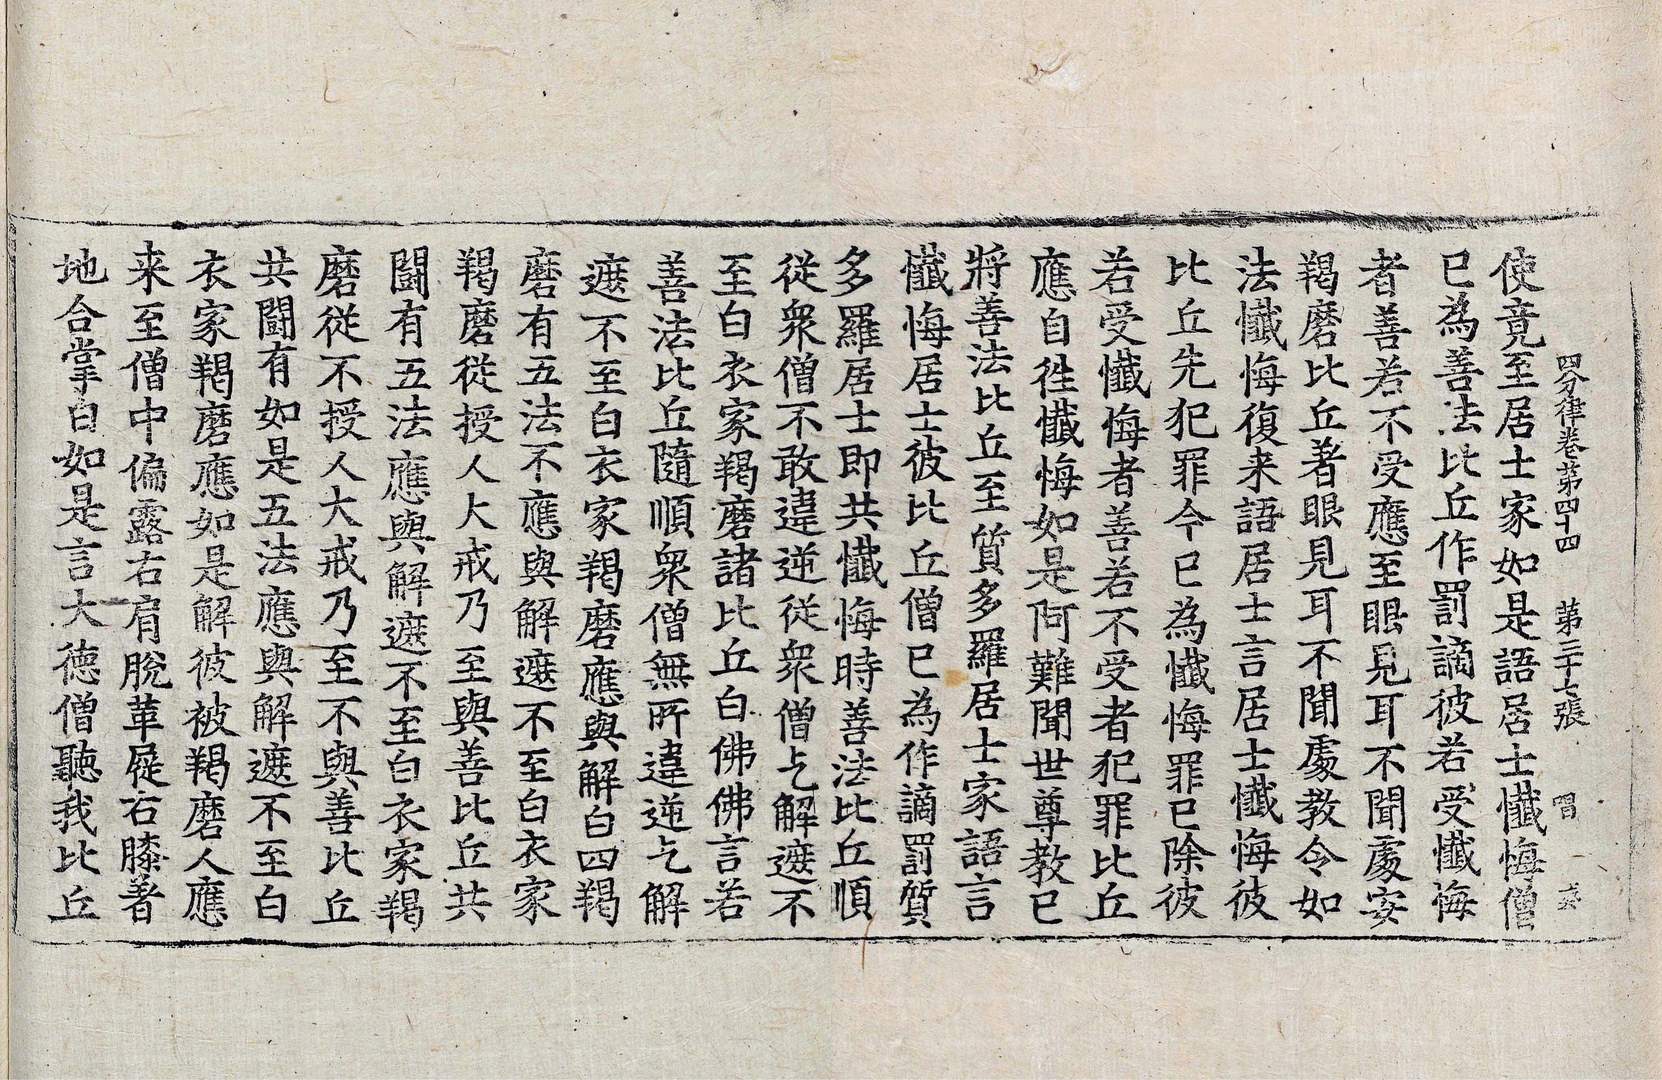 四分律卷第四十四　第三十七張　唱
使竟至居士家如是語居士懺悔僧
已為善法比丘作罰謫彼若受懺悔
者善若不受應至眼見耳不聞處安
羯磨比丘著眼見耳不聞處教令如
法懺悔復来語居士言居士懺悔彼
比丘先犯罪今已為懺悔罪已除彼
若受懺悔者善若不受者犯罪比丘
應自徃懺悔如是阿難聞世尊教已
將善法比丘至質多羅居士家語言
懺悔居士彼比丘僧已為作謫罰質
多羅居士即共懺悔時善法比丘順
從衆僧不敢違逆從衆僧乞解遮不
至白衣家羯磨諸比丘白佛佛言若
善法比丘隨順衆僧無所違逆乞解
遮不至白衣家羯磨應與解白四羯
磨有五法不應與解遮不至白衣家
羯磨從授人大戒乃至與善比丘共
鬪有五法應與解遮不至白衣家羯
磨從不授人大戒乃至不與善比丘
共鬪有如是五法應與解遮不至白
衣家羯磨應如是解彼被羯磨人應
来至僧中偏露右肩脫革屣右膝著
地合掌白如是言大德僧聽我比丘